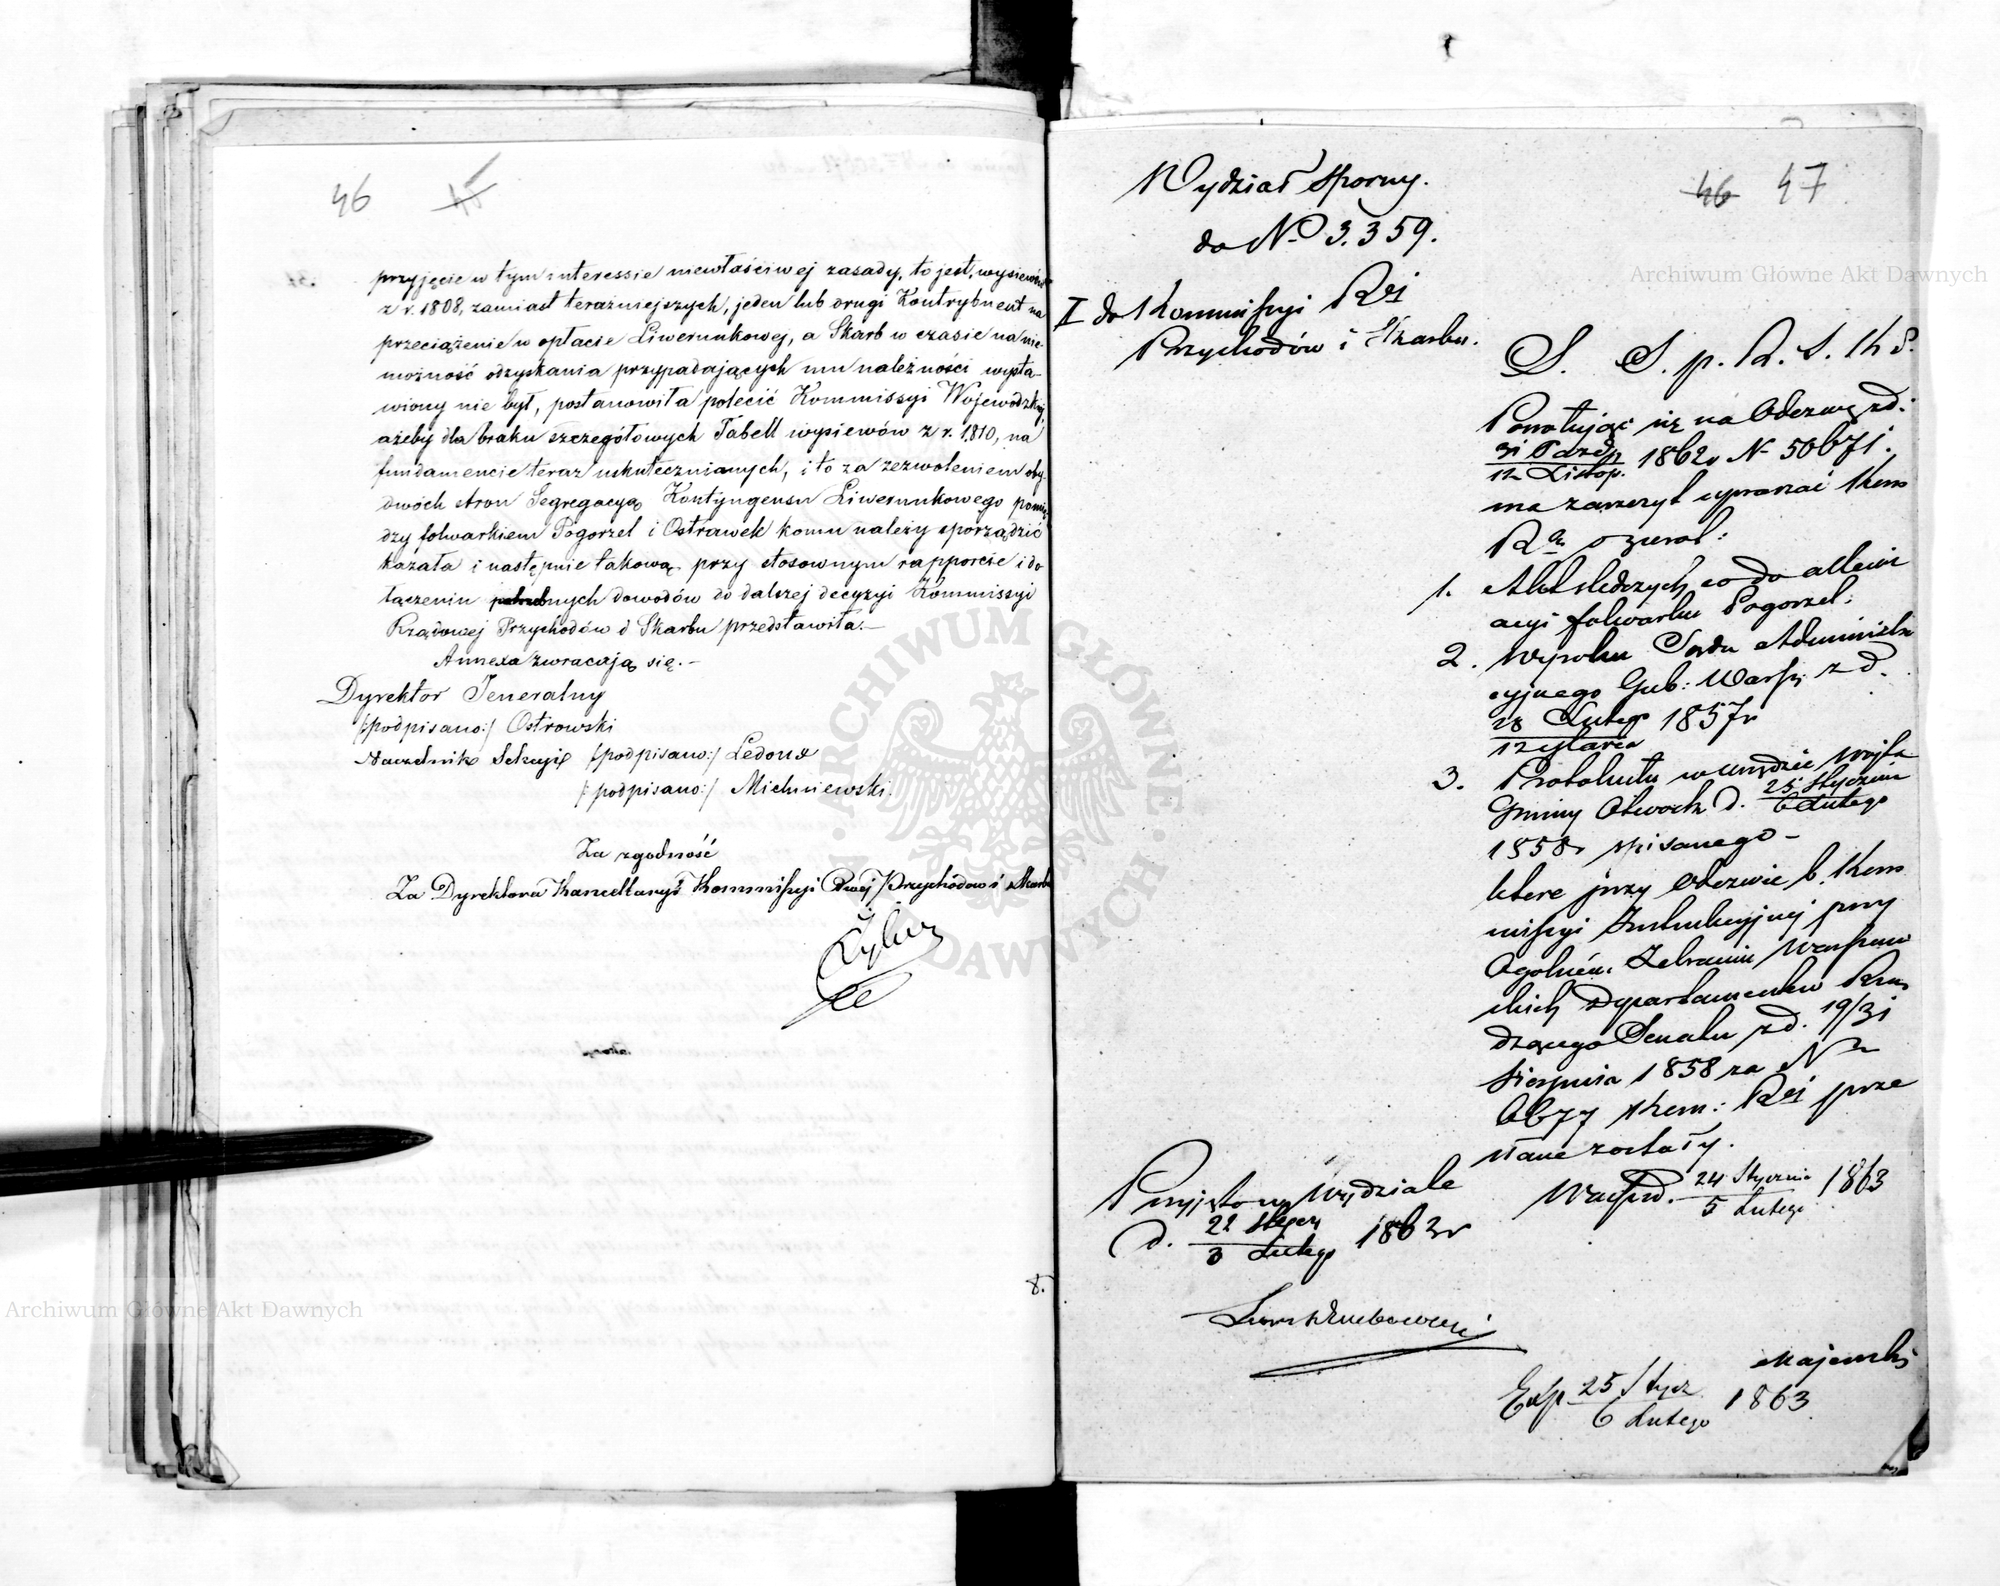 46 45
przyjęcie w tym interessie niewłaściwej zasady, to jest, wysiewów
z r. 1808, zamiast teraźniejszych, jeden lub drugi Kontrybuent na
przeciążenie w opłacie Liwerunkowej, a Skarb w czasie na nie-
możność odzyskania przypadających mu należności wysta-
wiony nie był, postanowiła polecić Kommissyi Wojewódzkiej,
ażeby dla braku szczegółowych Tabell wysiewów z r. 1810, na
fundamencie teraz uskutecznianych, i to za zezwoleniem oby-
dwóch stron Segregacyą Kontyngensu Liwerunkowego pomię-
dzy folwarkiem Pogorzel i Ostrawek komu należy sporządzić
kazała i następnie takową przy stosownym rapporcie i do
łączeniu dowodów do dalszej decyzyi Kommissyi
Rządowej Przychodów i Skarbu przedstawiła.—
Annexa zwracają się.—
Dyrektor Jeneralny
/:podpisano:/ Ostrowski
Naczelnik Sekcyi /:podpisano:/ Ledoux
/:podpisano:/ Michniewski.
Za zgodność
Za Dyrektora Kancellaryi Kommissyi Rwej Przychodów i Skarbu
8.
46 47
Wydział Sporny.
do No 3.359.
II do Kommissyi Rej
Przychodów i Skarbu.
S. S. p. R. S. K S.
Powołując się na Odezwę z d.
31 Paźdz
12 Listop. 1862 r N 50671.
ma zaszczyt upraszać Kom
Rą o zwrot:
1. Akt śledczych co do allewi
acyi folwarku Pogorzel.
2. Wyroku Sądu Administra
cyjnego Gub: Warsz. z d.
28 Lutego
12 Marca 1857 r
3. Protokułu w urzędzie Wójta
Gminy Otwock d. 25 Stycznia
6 Lutego
1858 r spisanego —
które przy Odezwie b. Kom
missyi Instrukcyjnej przy
Ogólném Zebraniu Warszaw
skich Dypartamentów Rzą
dzącego Senatu z d. 19/31
Sierpnia 1858 za N
Kom: Rej prze
słane zostały.
Warsz d. 24 Stycznia
5 Lutego 1863
Przyjęto w Wydziale
d. 22 Stycz
3 Lutego 1863 r
Majewski
Exp 25 Stycz
6 Lutego 1863
Archiwum Główne Akt Dawnych
Archiwum Główne Akt Dawnych
ARCHIWUM GŁÓWNE AKT DAWNYCH